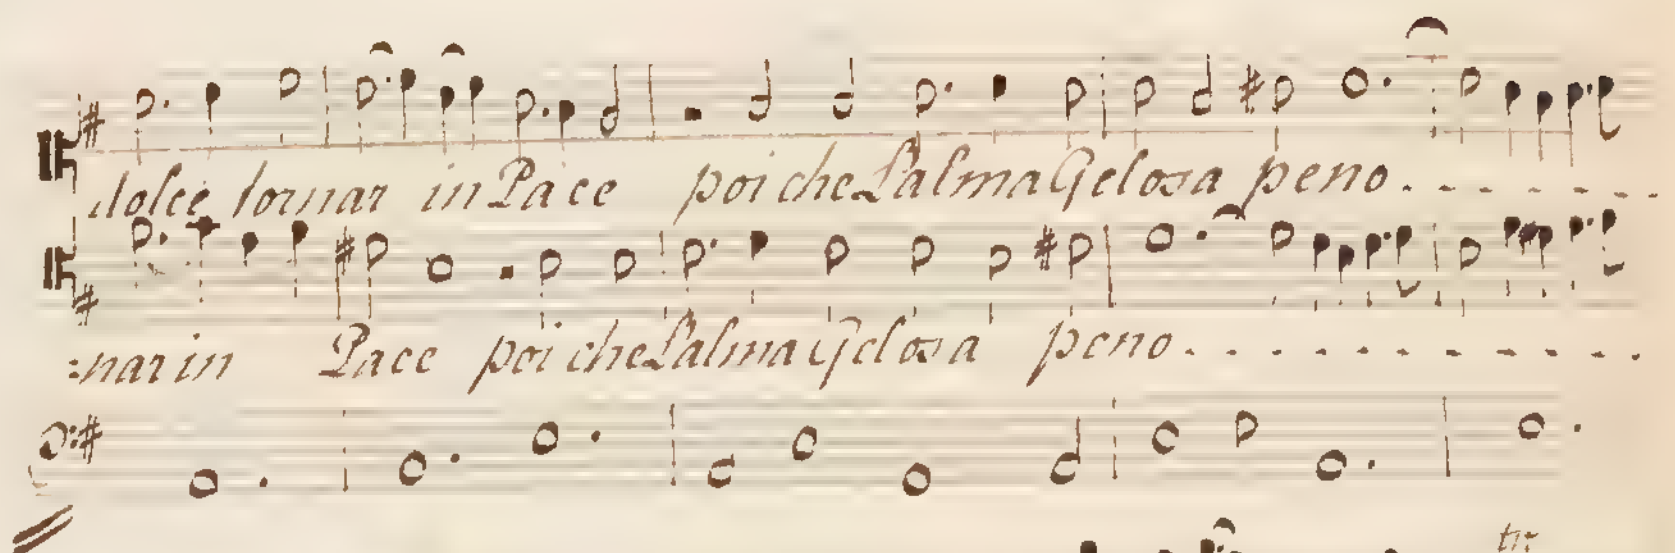 dolce tornar in Pace poi che L'alma Gelosa peno
:nar in Pace poi che L'alma Gelosa peno
tr